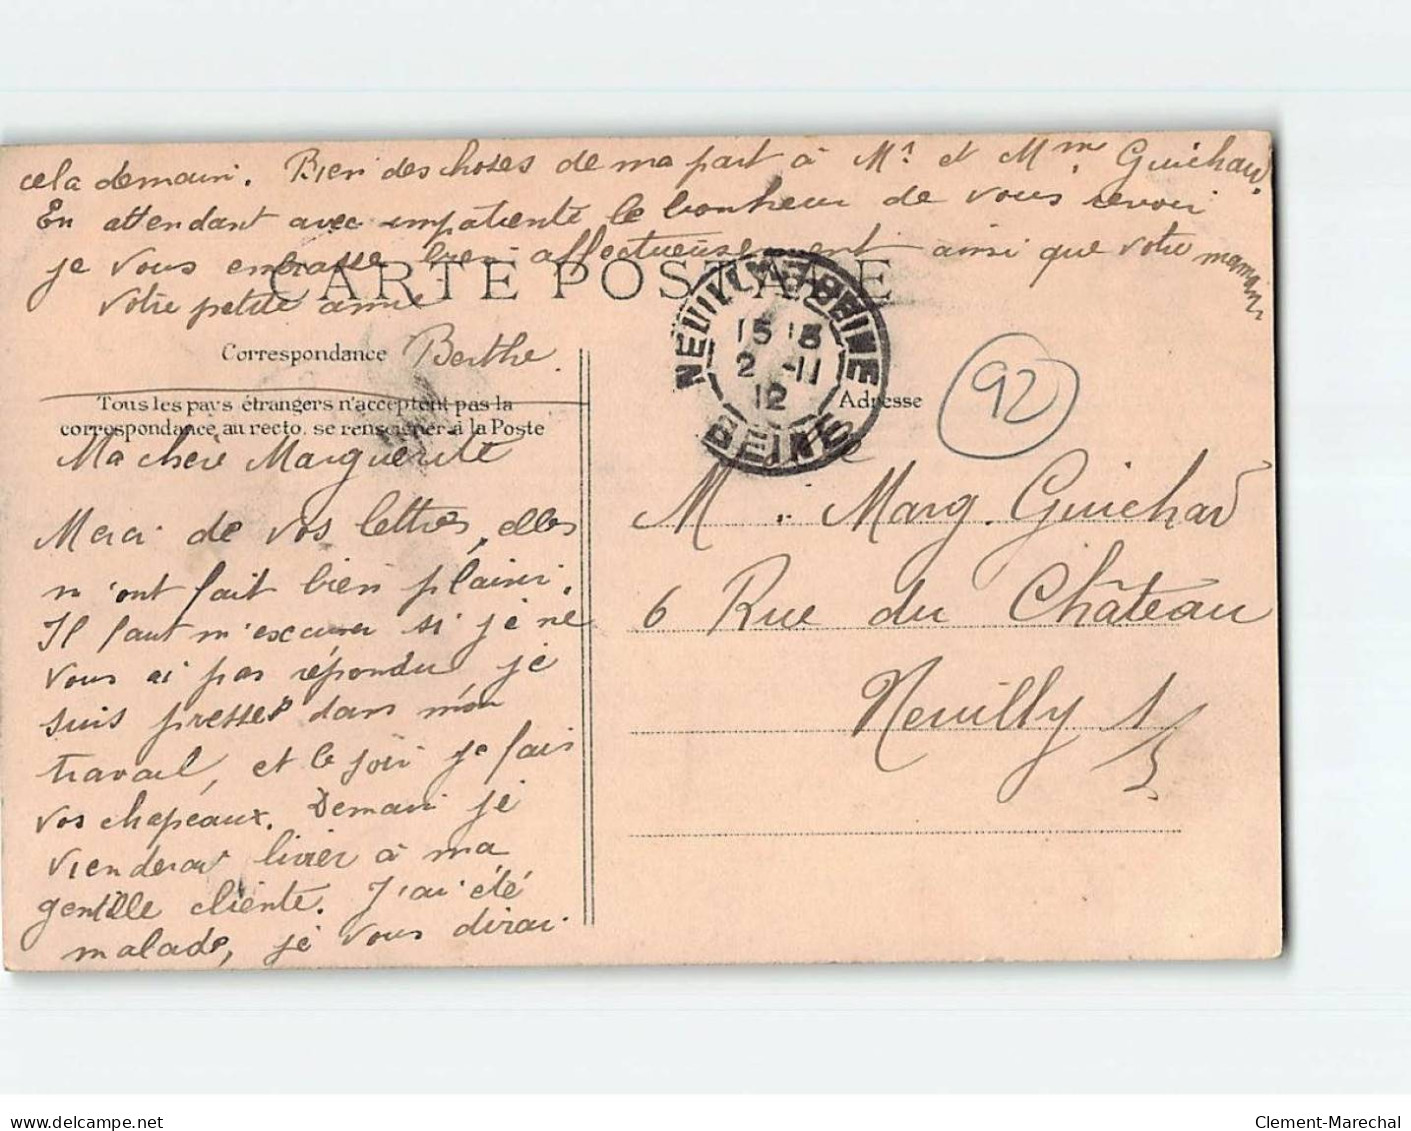 cela demain. Bien des choses de ma part à Mr et Mme Guichard.
En attendant avec impatiente le bonheur de vous revoir
je vous embrasse bien affectueusement ainsi que votre maman
CARTE POSTALE
votre petite amie
Correspondance Berthe.
Tous les pays étrangers n'acceptent pas la
correspondance au recto, se renseigner à la Poste
Ma chère Marguerite
Merci de vos lettres, elles
m'ont fait bien plaisir.
Il faut m'excuser si je ne
vous ai pas répondu je
suis pressée dans mon
travail, et le soir je fais
vos chapeaux. Demain je
vienderai livrer à ma
gentille cliente. J'ai été
malade, je vous dirai
NEUILLY-S-SEINE
15 15
2 -11
12
SEINE
Adresse
92
M. Marg. Guichard
6 Rue du Château
Neuilly s/s
delcampe.net
Clement-Marechal